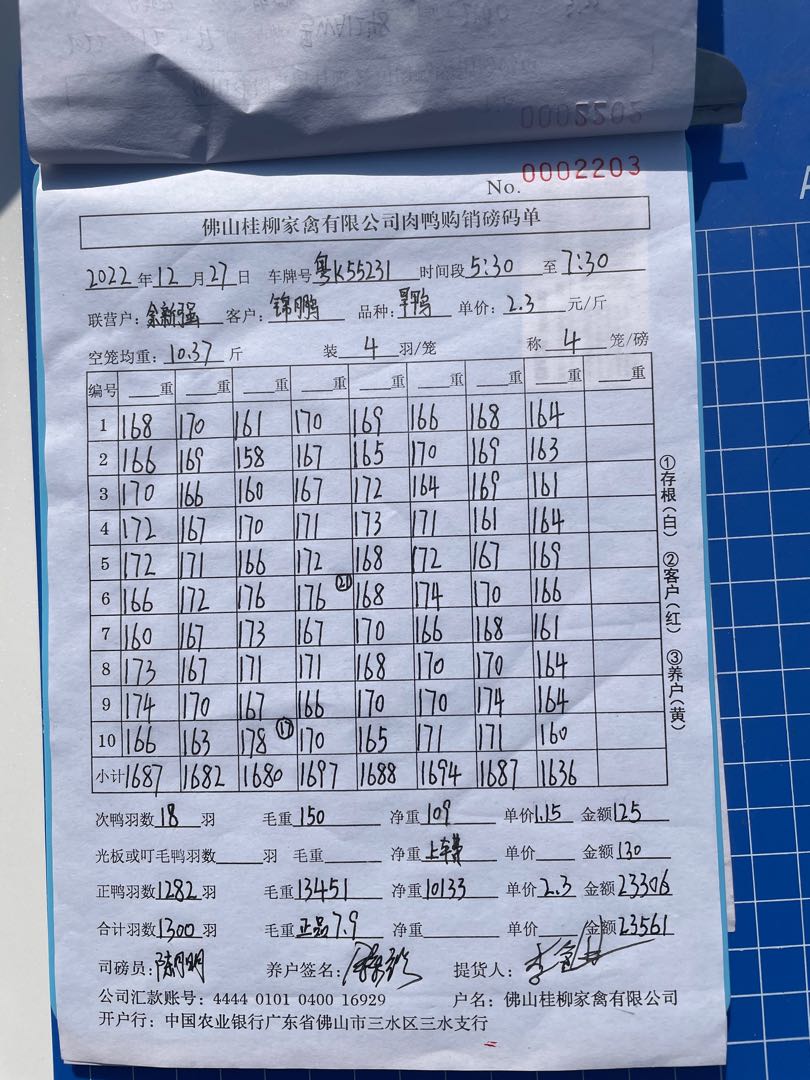 0002202
No. 0002203
佛山桂柳家禽有限公司肉鸭购销磅码单
2022年12月27日 车牌号粤K55231 时间段5:30至7:30
联营户:余新强 客户:锦鹏 品种:旱鸭 单价:2.3元/斤
空笼均重:10.37斤 装4羽/笼 称4笼/磅
编号 重 重 重 重 重 重 重 重 重
1 168 170 161 170 169 166 168 164
2 166 169 158 167 165 170 169 163
3 170 166 160 167 172 164 169 161
4 172 167 170 171 173 171 161 164
5 172 171 166 172 168 172 167 169
6 166 172 176 176 ㉑ 168 174 170 166
7 160 167 173 167 170 166 168 161
8 173 167 171 171 168 170 170 164
9 174 170 167 166 170 170 174 164
10 166 163 178 ⑰ 170 165 171 171 160
小计 1687 1682 1680 1697 1688 1694 1687 1636
①存根(白) ②客户(红) ③养户(黄)
次鸭羽数18羽 毛重150 净重109 单价1.15 金额125
光板或叮毛鸭羽数 羽 毛重 净重上车费 单价 金额130
正鸭羽数1282羽 毛重13451 净重10133 单价2.3 金额23306
合计羽数1300羽 毛重正品7.9 净重 单价 金额23561
司磅员:陈月明 养户签名: 提货人:
公司汇款账号:4444 0101 0400 16929 户名:佛山桂柳家禽有限公司
开户行:中国农业银行广东省佛山市三水区三水支行